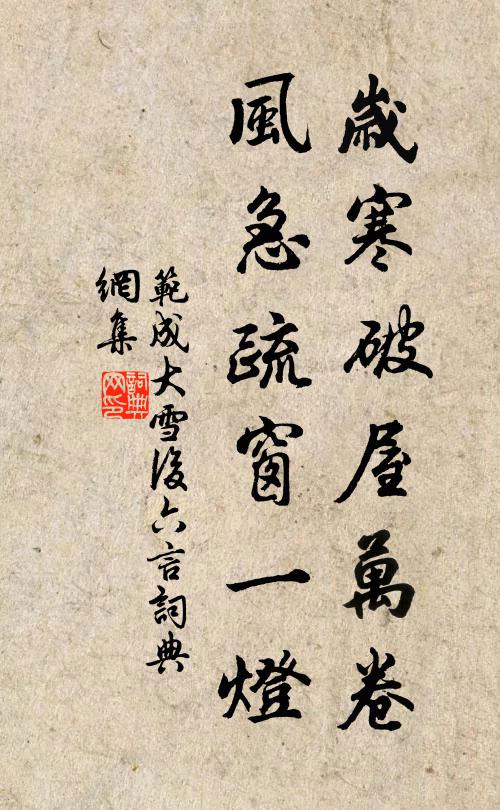 歲寒破屋萬卷
風急疏窗一燈
範成大雪後六言詞典
網集
詞典
网印